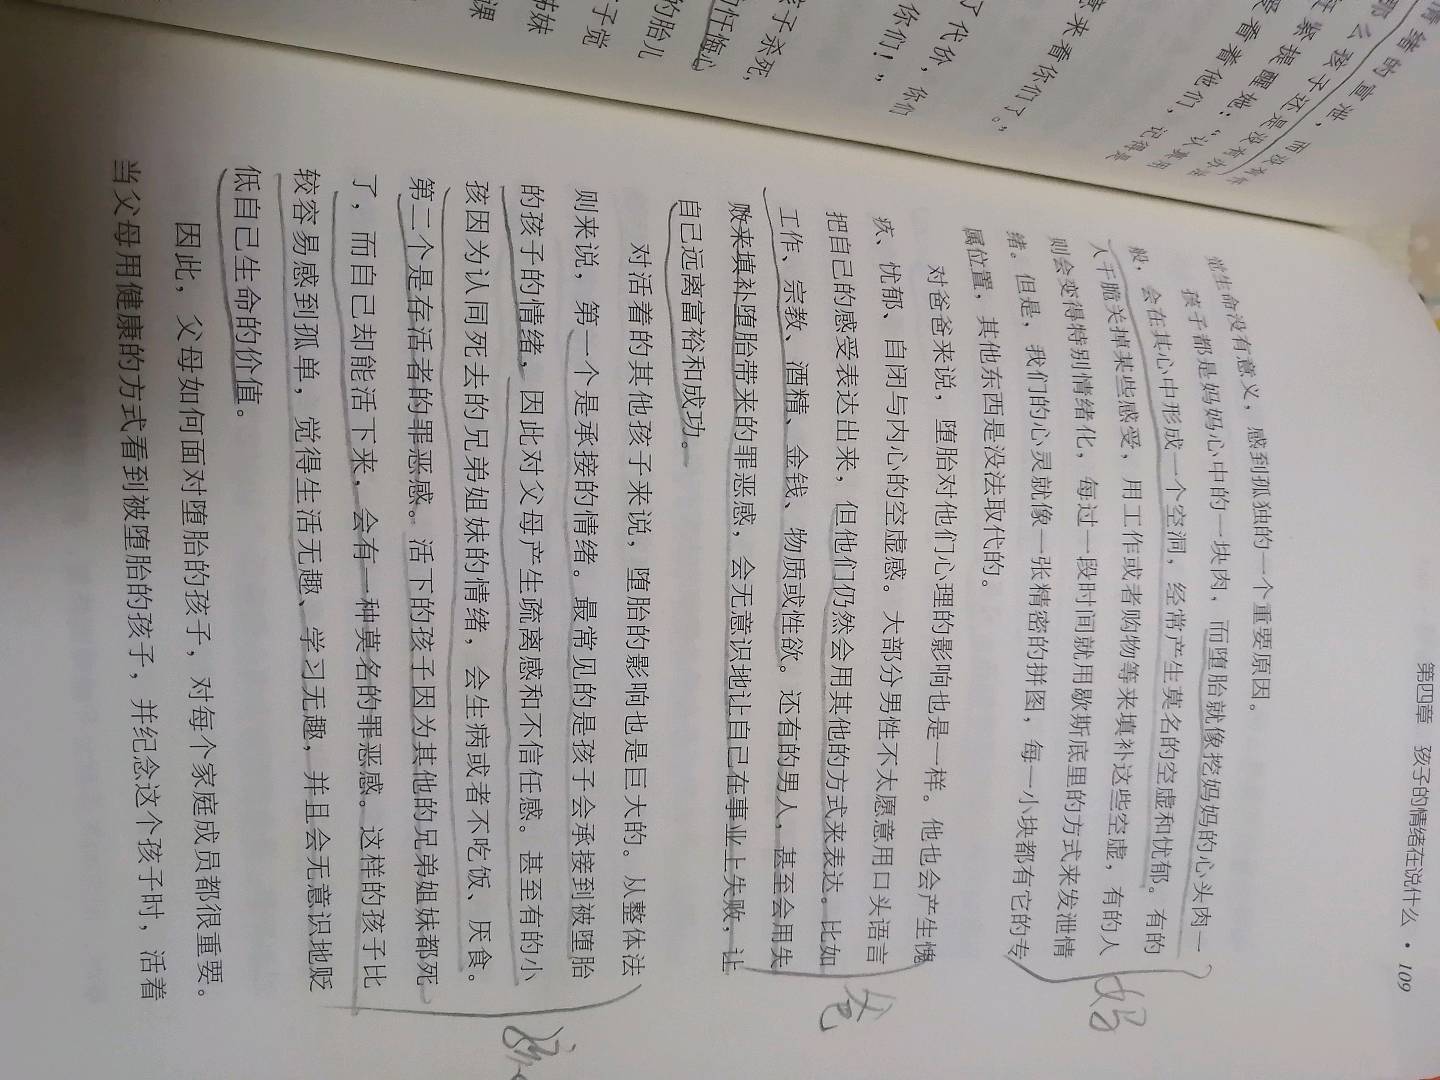 第四章 孩子的情绪在说什么 · 109
生命没有意义，感到孤独的一个重要原因。
孩子都是妈妈心中的一块肉，而堕胎就像挖妈妈的心头肉一
般，会在其心中形成一个空洞，经常产生莫名的空虚和忧郁。有的
人干脆关掉某些感受，用工作或者购物等来填补这些空虚，有的人
则会变得特别情绪化，每过一段时间就用歇斯底里的方式来发泄情
绪。但是，我们的心灵就像一张精密的拼图，每一小块都有它的专
属位置，其他东西是没法取代的。
对爸爸来说，堕胎对他们心理的影响也是一样。他也会产生愧
疚、忧郁、自闭与内心的空虚感。大部分男性不太愿意用口头语言
把自己的感受表达出来，但他们仍然会用其他的方式来表达。比如
工作、宗教、酒精、金钱、物质或性欲。还有的男人，甚至会用失
败来填补堕胎带来的罪恶感，会无意识地让自己在事业上失败，让
自己远离富裕和成功。
对活着的其他孩子来说，堕胎的影响也是巨大的。从整体法
则来说，第一个是承接的情绪。最常见的是孩子会承接到被堕胎
的孩子的情绪，因此对父母产生疏离感和不信任感。甚至有的小
孩因为认同死去的兄弟姐妹的情绪，会生病或者不吃饭、厌食。
第二个是存活者的罪恶感。活下的孩子因为其他的兄弟姐妹都死
了，而自己却能活下来，会有一种莫名的罪恶感。这样的孩子比
较容易感到孤单，觉得生活无趣、学习无趣，并且会无意识地贬
低自己生命的价值。
因此，父母如何面对堕胎的孩子，对每个家庭成员都很重要。
当父母用健康的方式看到被堕胎的孩子，并纪念这个孩子时，活着
妈
爸
孩
情绪的宣泄，而没有
那么孩子还是没有办法
紧提醒她：“认真的
看着他们，记得是
来看你们了。”
了代价，你们
你们！”
孩子杀死，
的忏悔心
的胎儿
子觉
姊妹
课